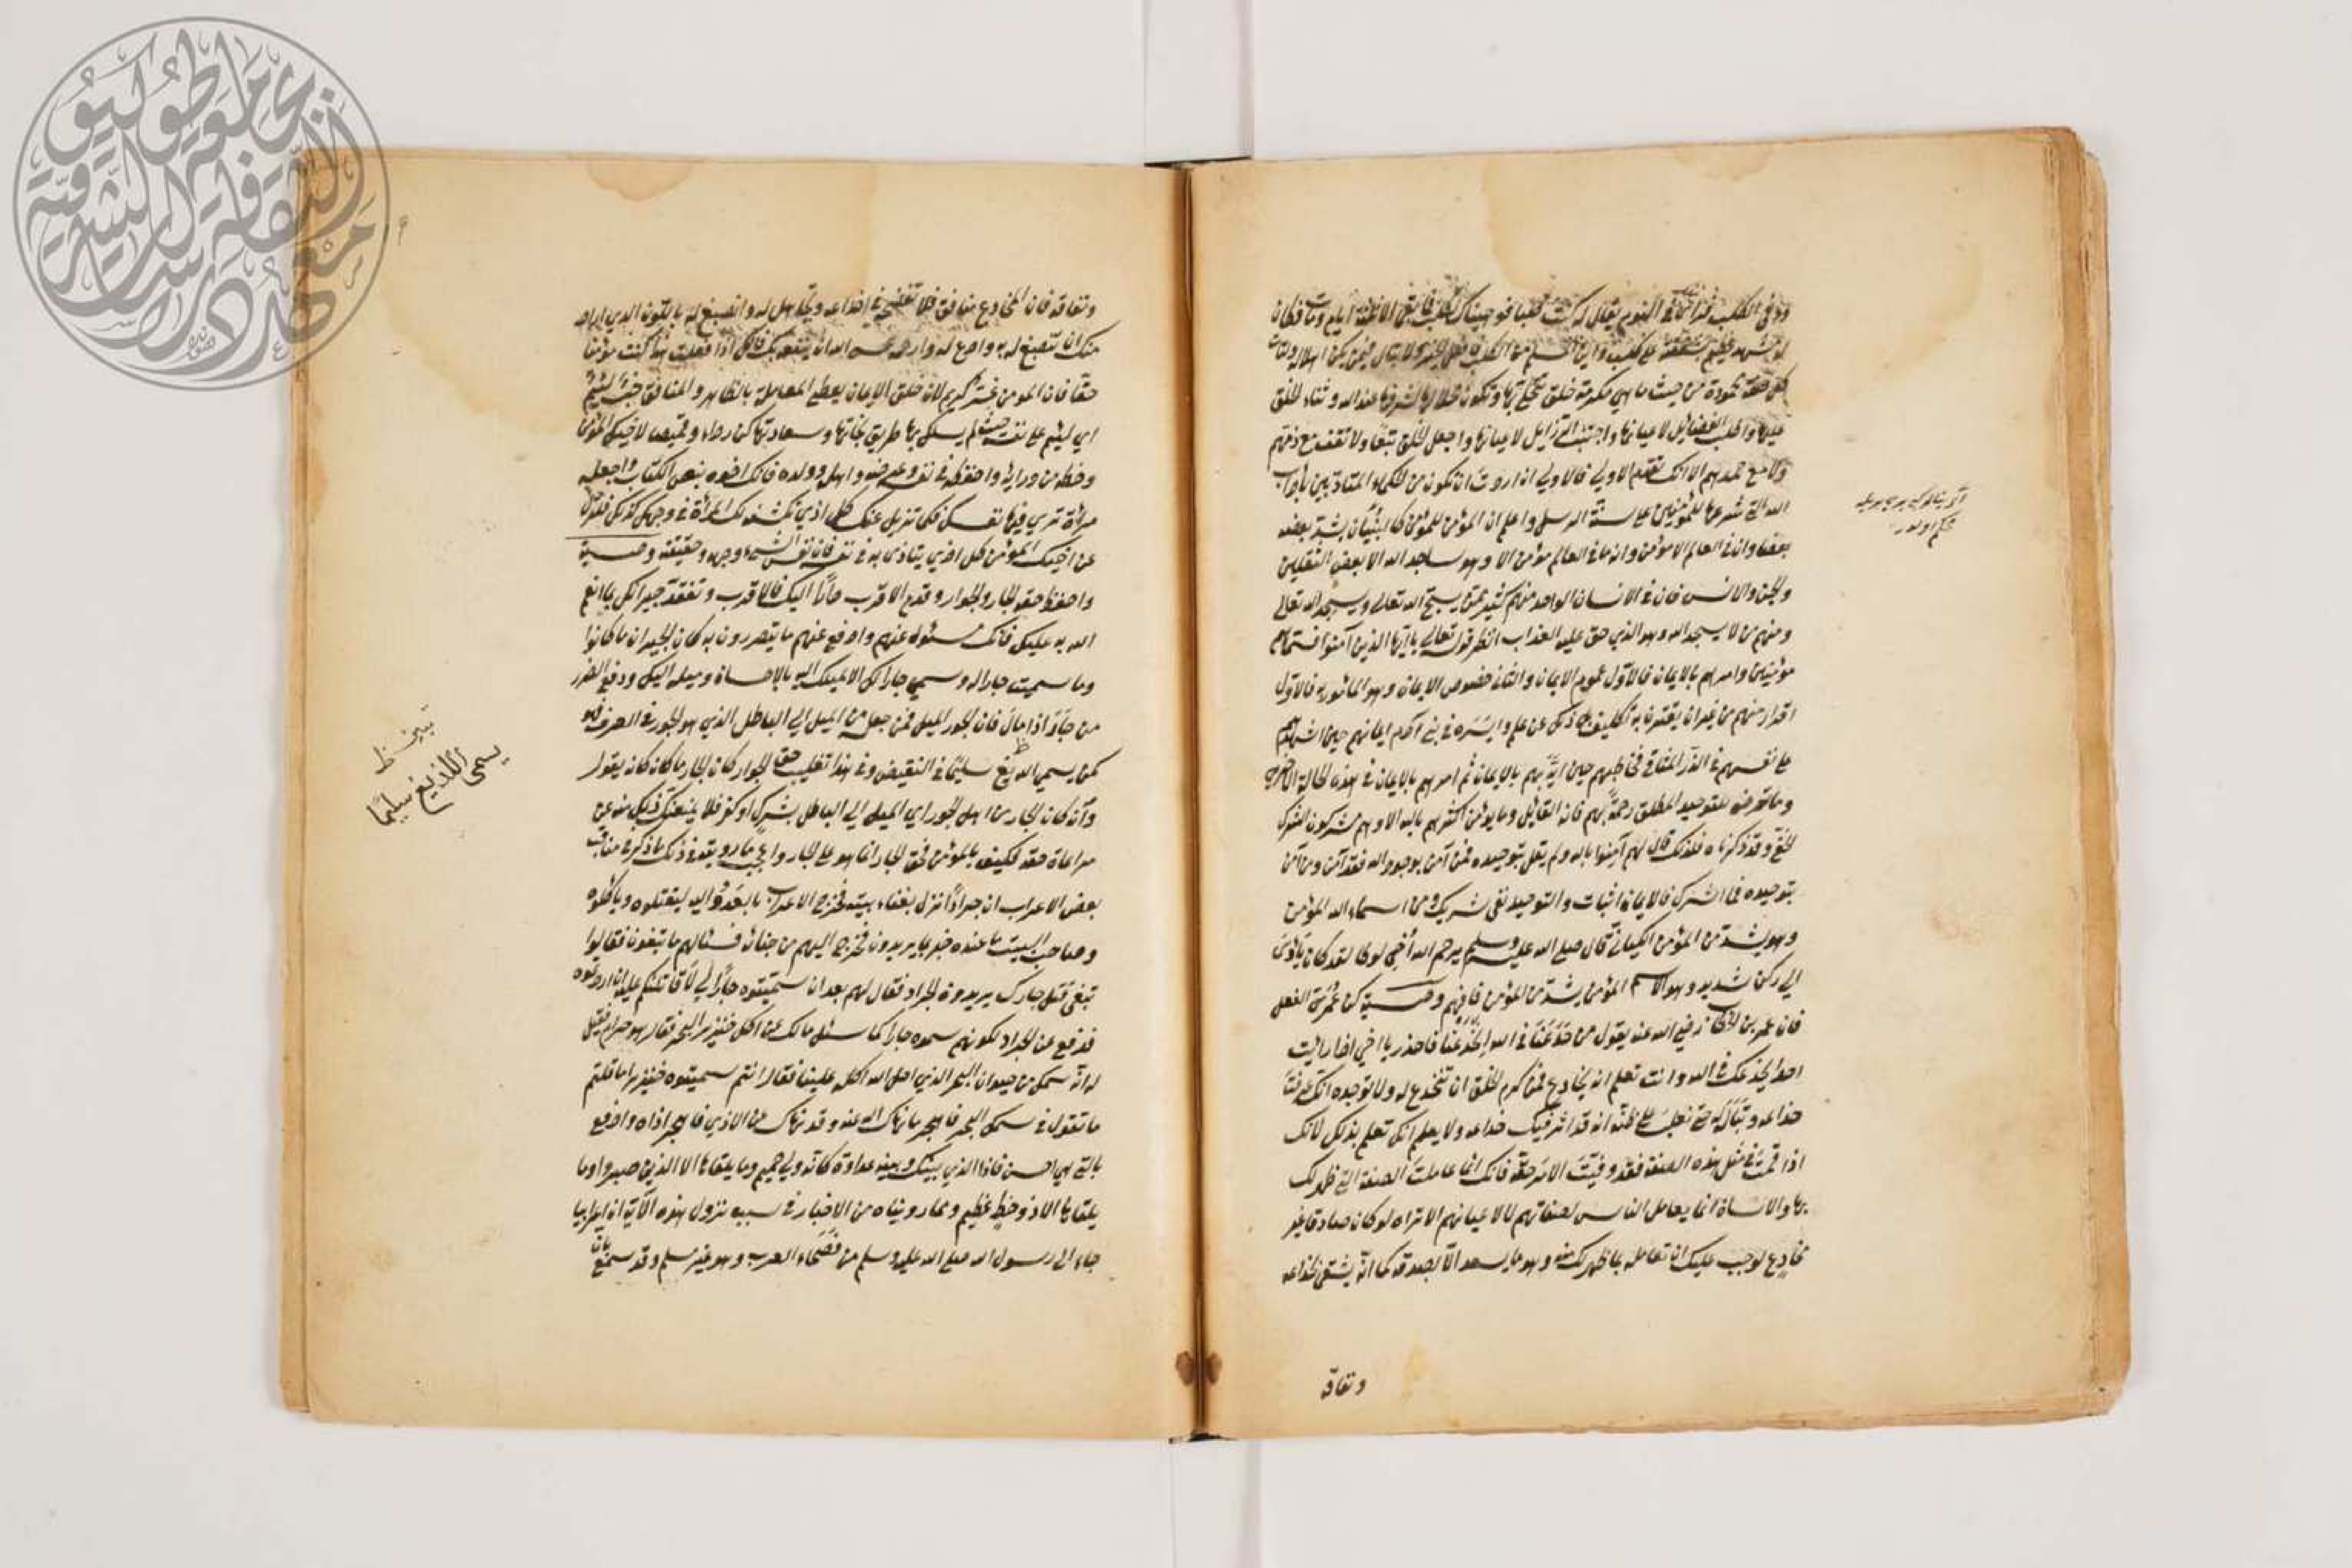 لو مشهد عظيم بشفقته على كلب واين المسلم من الكلب فافعل الخير ولا تبال فيمن يكن اهلا له ولتات
كل صفة محمودة من حيث ما هي مكرمة خلق تتحلى بها وتكون محلا لها لشرفها عند الله وثناء الخلق
عليها واطلب الفضائل لاعيانها واجتنب الرذايل لاعيانها واجعل الخلق تبعا ولا تقف مع ذمهم
ولا مع حمدهم الا انك تقدم الاولى فالاولى ان اردت ان تكون من الحكماء المتادبين باداب
الله التي شرعها للمؤمنين على سنة الرسل واعلم ان المؤمن للمؤمن كالبنيان يشد بعضه
بعضا وان في العالم الا مؤمن وانه ما في العالم مؤمن الا وهو ساجد لله الا بعض الثقلين
والجن والانس فان في الانسان الواحد منهم كثير ممن يسبح الله تعالى ويسجد لله تعالى
ومنهم من لا يسجد لله وهو الذي حق عليه العذاب انظر قوله تعالى يا ايها الذين آمنوا فسماهم
مؤمنين وامرهم بالايمان فالاول عموم الايمان والثاني خصوص الايمان وهو المأمور به فالاول
اقرار منهم من غير ان يقترن به تكليف بل ذلك عن علم وايسره في بني آدم ايمانهم حين اشهدهم
على نفسهم في الذر الميثاقي فخاطبهم حين ايه بهم بالايمان ثم امرهم بالايمان في هذه الحالة الاخرى
وما تعرض للتوحيد المطلق رحمة بهم فانه القايل وما يؤمن اكثرهم بالله الا وهم مشركون الشرك
الخفي وقد ذكرناه فلذلك قال لهم آمنوا بالله ولم يقل بتوحيده فمن آمن بوجود الله فقد آمن ومن آمن
بتوحيده فما اشرك فالايمان اثبات والتوحيد نفي شريك ومن اسماء الله المؤمن
وهو يشد من المؤمن الكياني قال صلى الله عليه وسلم يرحم الله أخي لوطا لقد كان يأوى
الى ركن شديد وهو الاسم المؤمن يشد من المؤمن فافهم وصية كن عمري الفعل
فان عمر بن الخطاب رضي الله عنه يقول من خدعنا في الله انخدعنا له فاحذر يا اخي اذا رايت
احدا يخدعك في الله وانت تعلم انه يخادع فمن كرم الخلق ان تنخدع له ولا توجده انك عرفت
خداعه وتباله حتى تغلب على ظنه انه قد اثر فيك خداعه ولا يعلم انك تعلم بذلك لانك
اذا قمت في مثل هذه الصفة فقد وفيت الامر حقه فانك انما عاملت الصفة التي ظهر لك
بها والانسان انما يعامل الناس لصفاتهم لا لاعيانهم الا تراه لو كان صادقا غير
مخادع لوجب عليك ان تعامله بما ظهر لك منه وهو ما يسعد الا بصدقه كما انه يشقى بخداعه
ونفاقه
ونفاقه فان المخادع منافق فلا تفضحه في خداعه وتجاهل له وانصبغ له باللون الذي اراد
منك ان تنصبغ له به وادع له وارحمه عسى الله ان ينفعه بك فانك اذا فعلت هذا كنت مؤمنا
حقا فان المومن غر كريم لان خلق الايمان يعطي المعاملة بالظاهر والمنافق خب لئيم
اي لئيم على نفسه حيث لم يسلك بها طريق نجاتها وسعادتها كن رداء وقميصا لاخيك المؤمن
وحطه من ورايه واحفظه في نفسه وعرضه واهله وولده فانك اخوه بنص الكتاب واجعله
مرآة ترى فيها نفسك فكما تزيل عنك كل اذي تكشفه لك المرآة في وجهك كذلك فلتزل
عن اخيك المؤمن كل اذي يتاذى به في نفسه فان نفس الشيء وجهه وحقيقته وصية
واحفظ حق الجار والجوار وقدم الاقرب دارا اليك فالاقرب وتفقد جيرانك مما انعم
الله به عليك فانك مسئول عنهم وادفع عنهم ما يتضررون به كان الجيران ما كانوا
وما سميت جارا له وسمي جارا لك الا لميلك اليه بالاحسان وميله اليك ودفع الضرر
من جار اذا مال فان الجور الميل فمن جعله من الميل الى الباطل الذي هو الجور في العرف فهو
كمن يسمي اللديغ سليما في النقيض وفي هذا تغليب حق الجوار كان الجار ما كان كان يقول
وان كان الجار من اهل الجور اي الميل الى الباطل بشرك او كفر فلا يمنعنك ذلك منه عن
مراعاة حقه فكيف بالمؤمن فحق الجار انما هو على الجار واعجب ما رويته في ذلك ما ذكر في مناقب
بعض الاعراب ان جرادا نزل بفناء بيته فخرج الاعراب بالعدد اليه ليقتلوه وياكلوه
وصاحب البيت ما عنده خبر بما يريدون فخرج اليهم من خبائه فسئالهم ما تبغون فقالوا
نبغي قتل جارك يريدون الجراد فقال لهم بعد ان سميتموه جارا لي لاقاتلنكم عليه ان اردتموه
فدفع عن الجراد لكونهم سموه جارا كما سئل مالك عن اكل خنزير البحر فقال هو حرام فقيل
له انه سمك من حيوان البحر الذي احل الله اكله علينا فقال انتم سميتموه خنزيرا ما قلتم
ما تقول في سمك البحر فاهجر ما نهاك الله عنه وقد نهاك عن الاذي فاهجر اذاه وادفع
بالتي هي احسن فاذا الذي بينك وبينه عداوة كانه ولي حميم وما يلقاها الا الذين صبروا وما
يلقاها الا ذو حظ عظيم ومما رويناه من الاخبار في سبب نزول هذه الآية ان اعرابيا
جاء الى رسول الله صلى الله عليه وسلم من فصحاء العرب وهو غير مسلم وقد سمع بان
يسمى اللديغ سليما